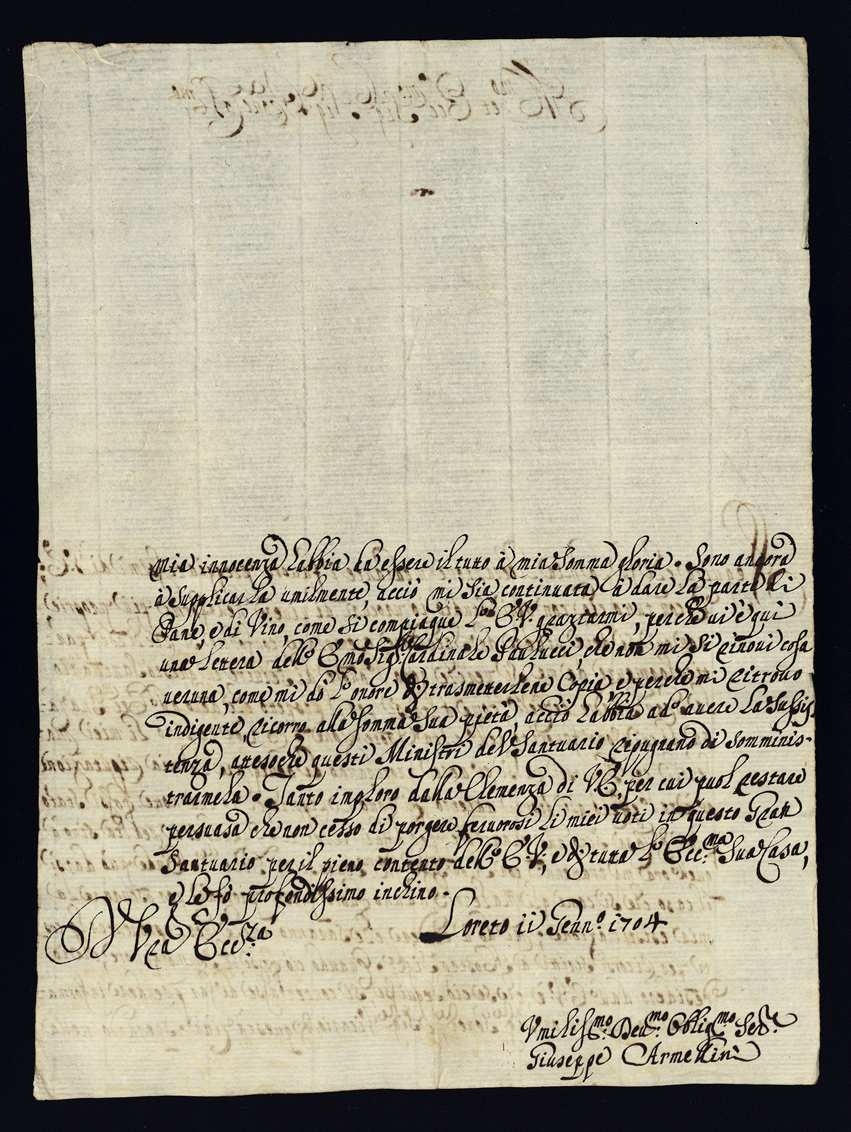 mia innocenza habbia da essere il tuto à mia somma gloria. Sono ancora
à supplicarla umilmente, acciò mi sia continuata à dare la parte di
Pane, e di Vino, come si compiaque l'E.V. graztarmi, perche vi è qui
una lettera dell'Emo Sigr Cardinale Paulucci, che non mi si rinovi cosa
veruna, come mi dò l'onore di trasmetterlene Copia, e perche mi ritrovo
indigente, ricorro alla somma sua pietà, acciò habbia ad avere la sussis-
tenza, atesoche questi Ministri del Santuario ripugnano di somminis-
tramela. Tanto imploro dalla Clemenza di V.E. per cui puol restare
persuasa che non cesso di porgere fervorosi li miei voti in questo Gran
Santuario per il pieno contento dell'E.V., e di tutta l'Ecc.ma Sua Casa,
e le fò profondissimo inchino.
Loreto 11 Genn.o 1704
Vra Ecc.za
Umiliss.mo Dev.mo Oblig.mo Ser.e
Giuseppe Armellini